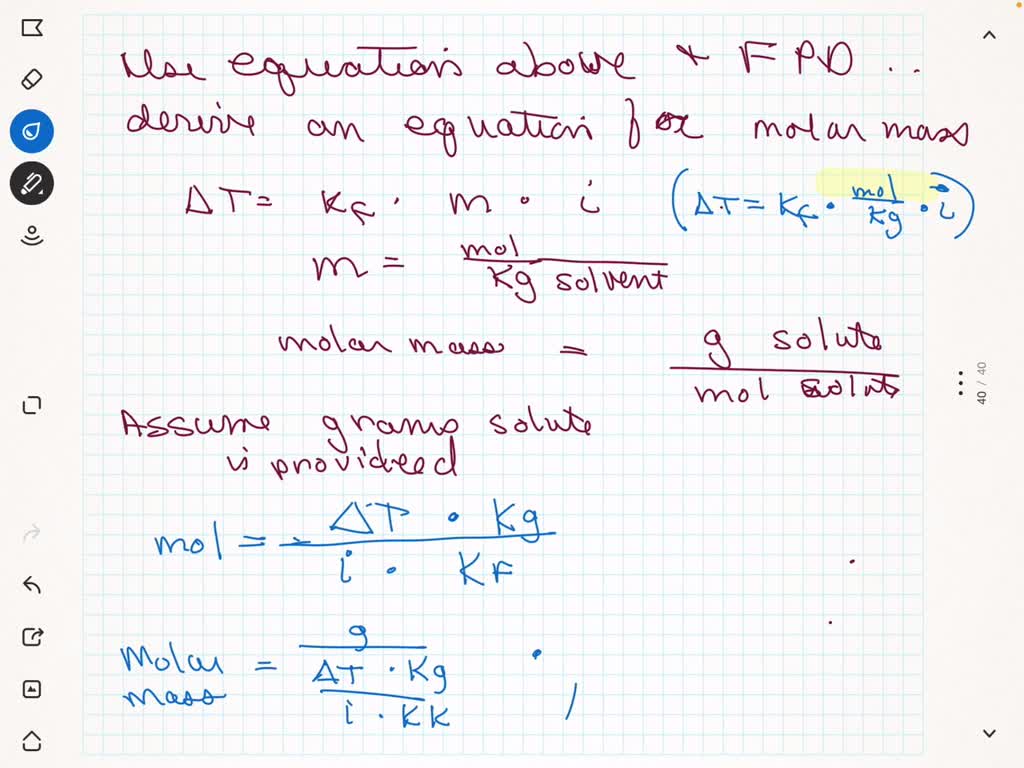 Use equations above + FPD ..
derive an equation for molar mass
ΔT = KF · m · i (ΔT = KF · mol/Kg · i)
m = mol/Kg solvent
molar mass = g solute/mol solute
Assume grams solute
is provideed
mol = ΔT · Kg/i · KF
Molar mass = g/ΔT · Kg/i · KK
40 / 40